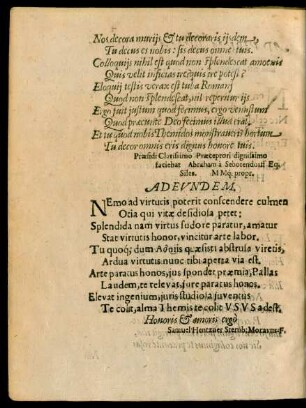 Nos decora nutrijs & tu decoraris ijsdem,
Tu decus es nobis: sis decus omne tuis.
Colloquij nihil est quod non splendescat amœnis
Quis velit inficias
Eloquij testis verax est tuba Romani
Quod non splendescat, nil reperitur ijs
Ergo fuit justum quod fecimus, ergo venustum
Quod præeunte Deo fecimus illud erat.
Et tu quod nobis Themidos monstraveris hortum
Tu decor omnis eris dignus honore tuis.
Præsidi Clarissimo Præceptori dignissimo
faciebat Abraham à Sebottendorf Eq.
Siles. M Mq; propr.
AD EVNDEM.
NEmo ad virtutis poterit conscendere culmen
Otia qui vitæ desidiosa petet;
Splendida nam virtus sudore paratur, amatur
Stat virtutis honor, vincitur arte labor.
Tu quoq; dum Aonijs quæsisti abstrusa viretis,
Ardua virtutis nunc tibi aperta via est.
Arte paratus honos, jus spondet præmia, Pallas
Laudem, te relevat jure paratus honos.
Elevat ingenium, juris studiosa juventus
Te colit, alma Themis te colit VSVS adest.
Honoris & amoris ergò
Samuel Hentzner Sternb: Moravus F.